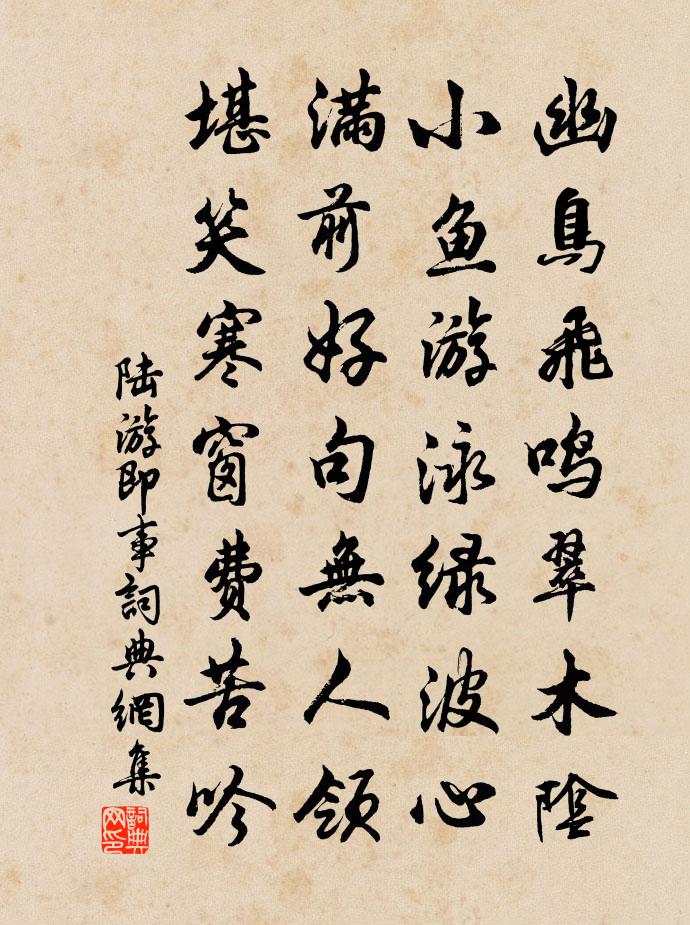 幽鳥飛鳴翠木陰
小鱼游泳绿波心
滿前好句無人領
堪笑寒窗費苦吟
陆游即事詞典網集
詞典
网印